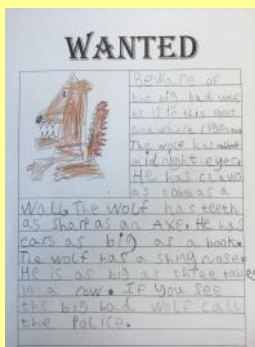 WANTED
Beware of
the big bad wolf
he is in this
The wolf has
midnight eyes.
He has claws
as as a
Wall. The wolf has teeth
as sharp as an AXe. He has
ears as big as a book.
The wolf has a shiny nose.
He is as big as three
in a row. If you see
the big bad wolf call
the police.